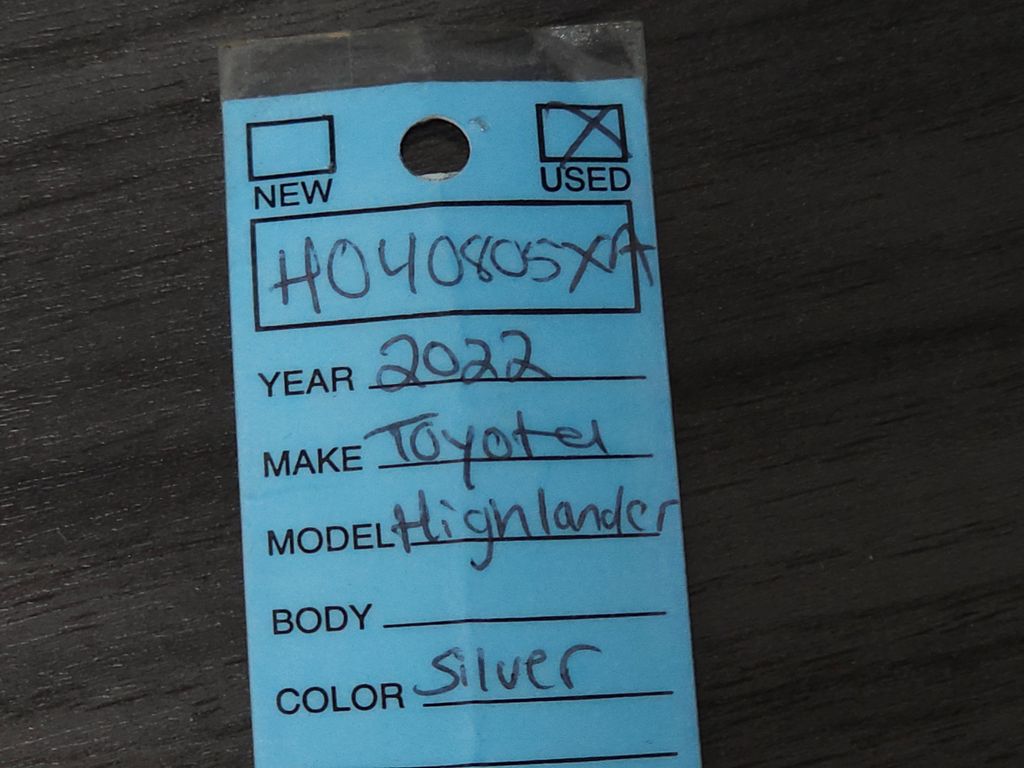 NEW USED
H040805XA
YEAR 2022
MAKE Toyota
MODEL Highlander
BODY
COLOR Silver